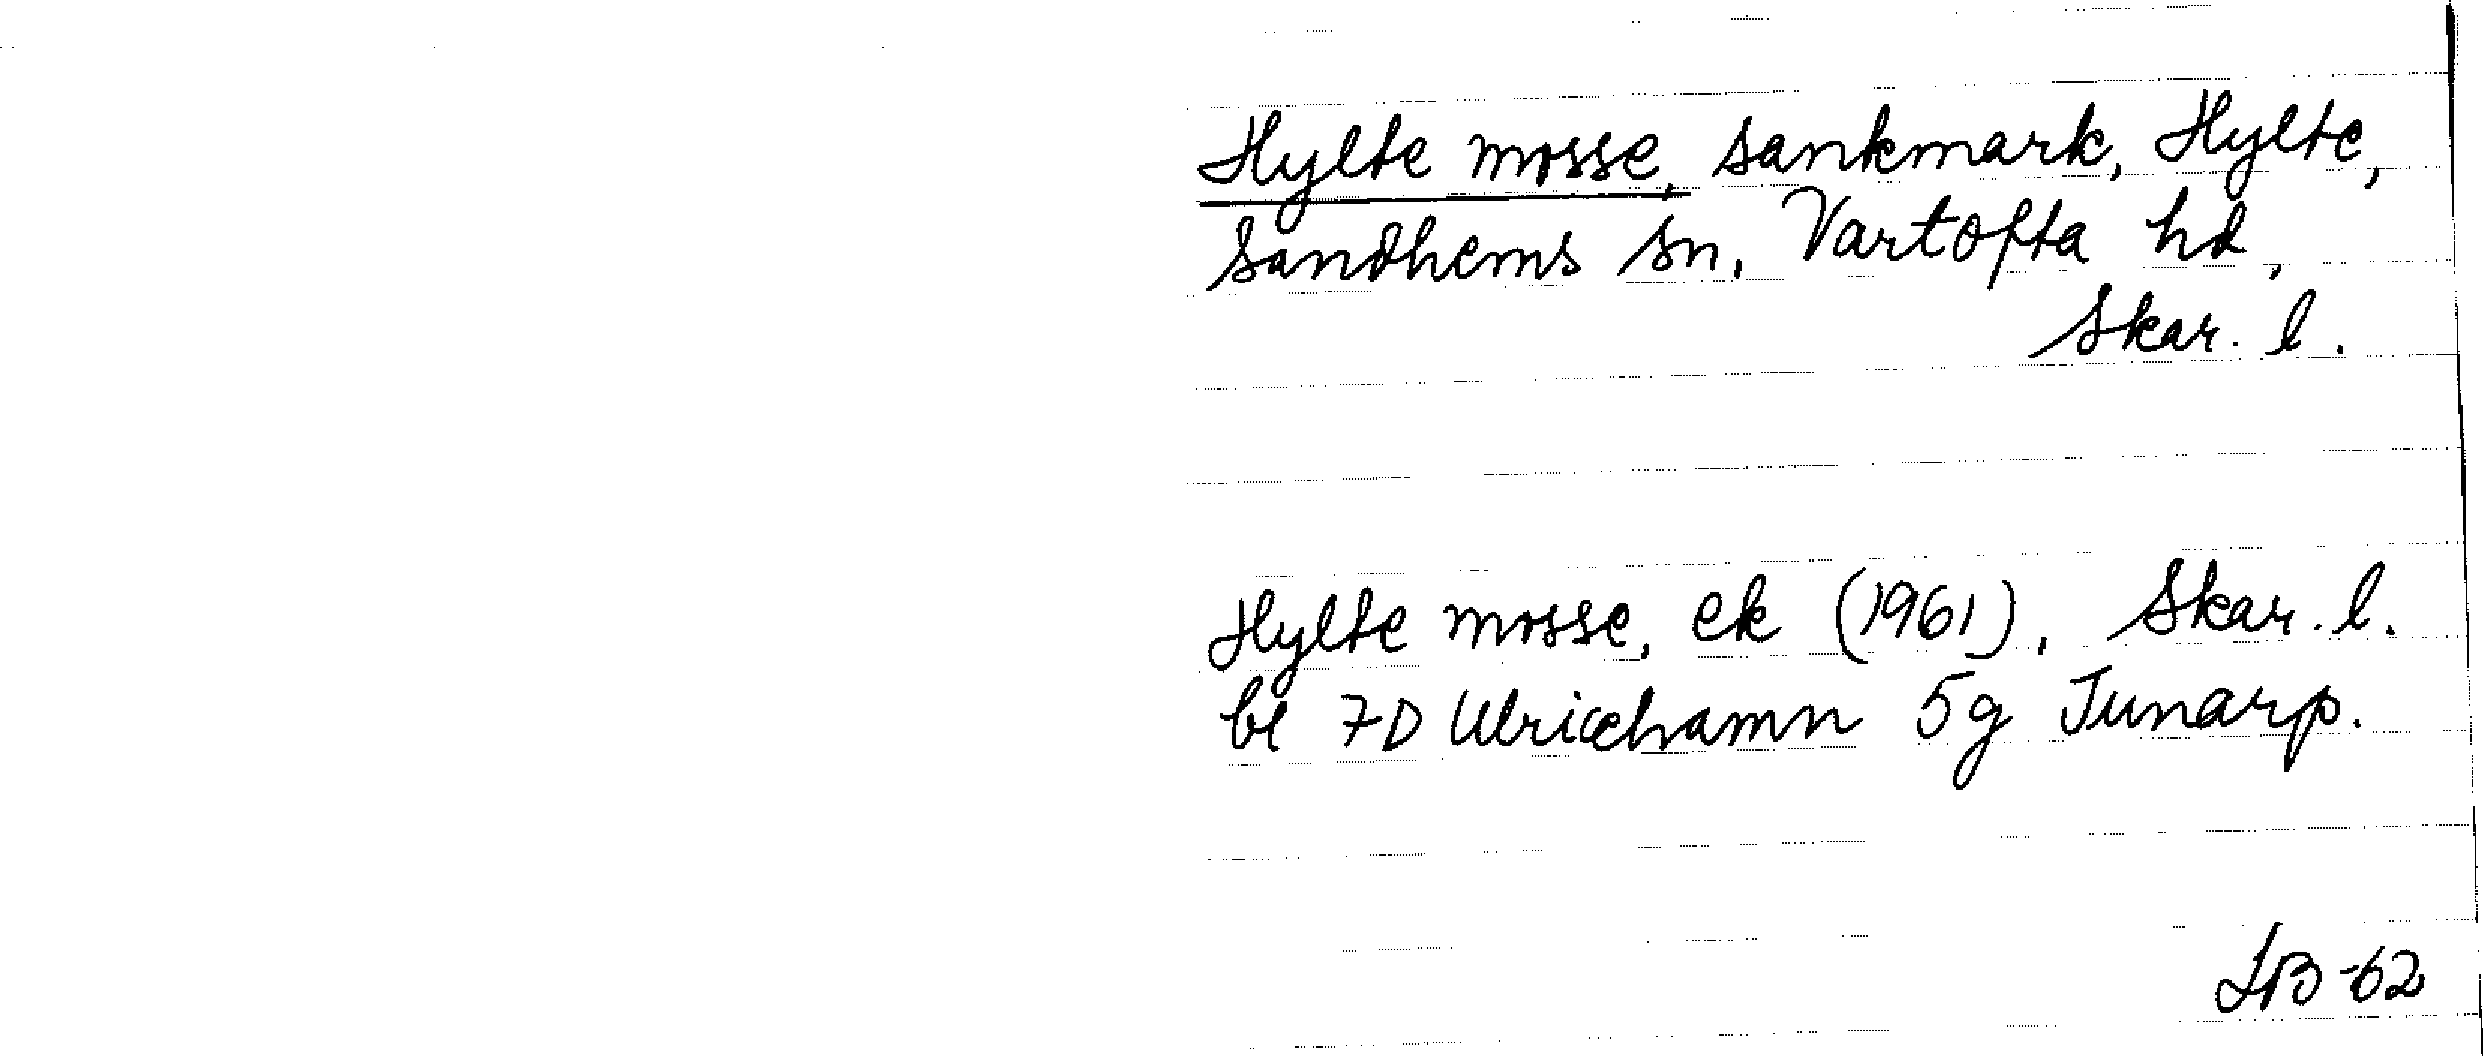 Hylte mosse, sankmark, Hylte,
Sandhems sn, Vartofta hd,
Skar. l.
Hylte mosse, ek (1961), Skar. l.
bl 7D Ulricehamn 5g Tunarp.
HB-62